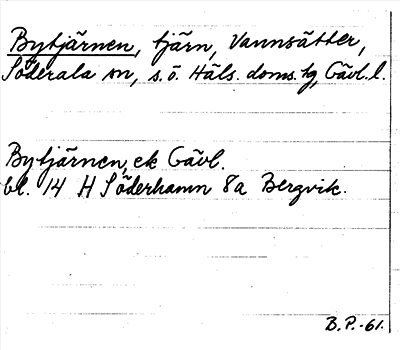 Bytjärnen, tjärn, Vannsätter,
Söderala sn, s.ö. Häls. doms. hg, Gävl. l.
Bytjärnen, ek Gävl.
bl. 14 H Söderhamn 8a Bergvik.
B.P.-61.